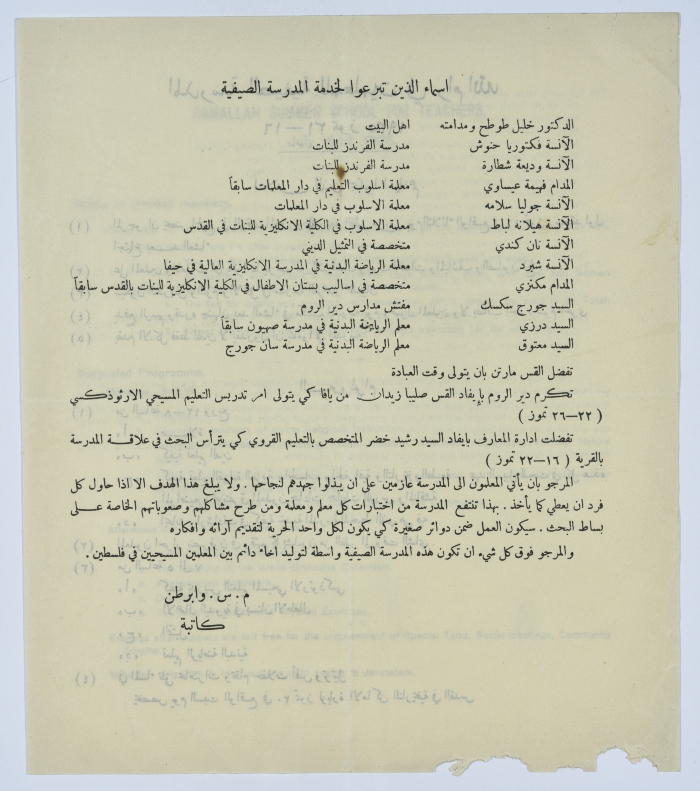 اسماء الذين تبرعوا لخدمة المدرسة الصيفية
الدكتور خليل طوطح ومدامته اهل البيت
الآنسة فكتوريا حنوش مدرسة الفرندز للبنات
الآنسة وديعة شطارة مدرسة الفرندز للبنات
المدام فهيمة عيساوي معلمة اسلوب التعليم في دار المعلمات سابقاً
الآنسة جوليا سلامه معلمة الاسلوب في دار المعلمات
الآنسة هيلانه لباط معلمة الاسلوب في الكلية الانكليزية للبنات في القدس
الآنسة نان كندي متخصصة في التمثيل الديني
الآنسة شبرد معلمة الرياضة البدنية في المدرسة الانكليزية العالية في حيفا
المدام مكنزي متخصصة في اساليب بستان الاطفال في الكلية الانكليزية للبنات بالقدس سابقاً
السيد جورج سكسك مفتش مدارس دير الروم
السيد درزي معلم الرياضة البدنية في مدرسة صهيون سابقاً
السيد معتوق معلم الرياضة البدنية في مدرسة سان جورج
تفضل القس مارتن بان يتولى وقت العبادة
تكرم دير الروم بإيفاد القس صليبا زيدان من يافا كي يتولى امر تدريس التعليم المسيحي الارثوذكسي
( ٢٢—٢٦ تموز )
تفضلت ادارة المعارف بايفاد السيد رشيد خضر المتخصص بالتعليم القروي كي يترأس البحث في علاقة المدرسة
بالقرية ( ١٦—٢٢ تموز )
المرجو بان يأتي المعلمون الى المدرسة عازمين على ان يبذلوا جهدهم لنجاحها . ولا يبلغ هذا الهدف الا اذا حاول كل
فرد ان يعطي كما يأخذ . بهذا تنتفع المدرسة من اختبارات كل معلم ومعلمة ومن طرح مشاكلهم وصعوباتهم الخاصة على
بساط البحث . سيكون العمل ضمن دوائر صغيرة كي يكون لكل واحد الحرية لتقديم آرائه وافكاره
والمرجو فوق كل شيء ان تكون هذه المدرسة الصيفية واسطة لتوليد اخاء دائم بين المعلمين المسيحيين في فلسطين .
م . س . وابرطن
كاتبة